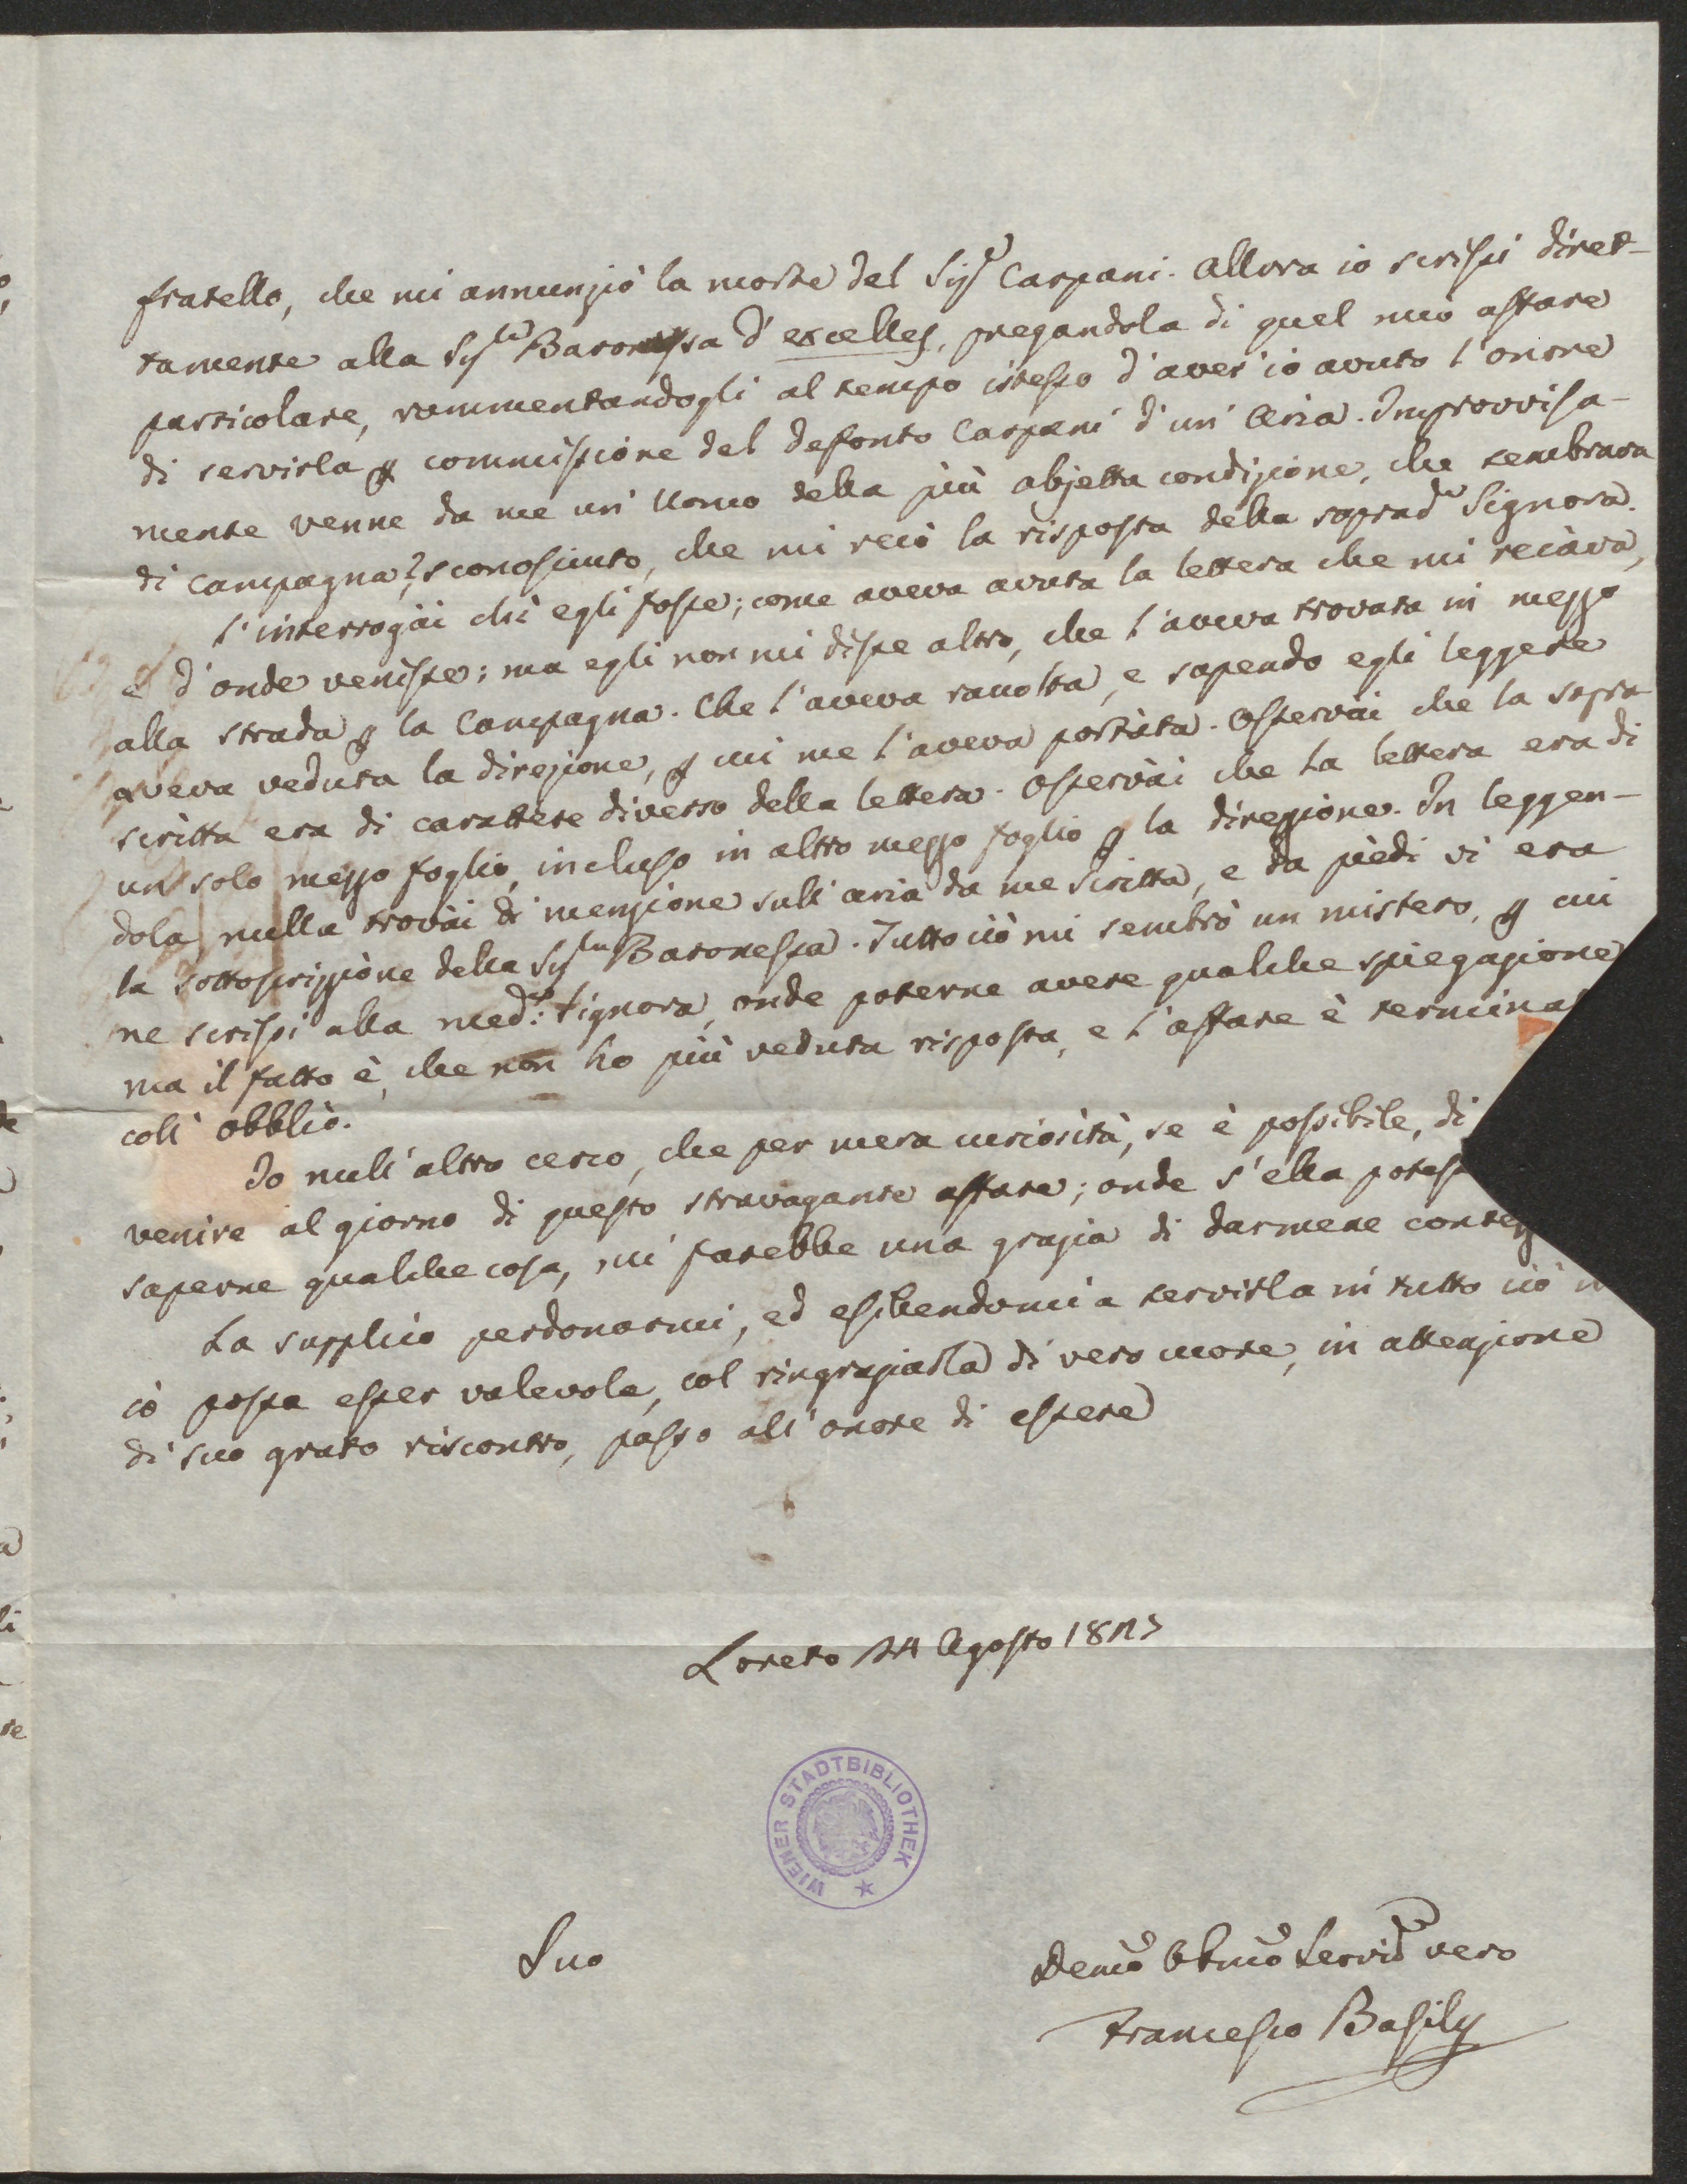 fratello, che mi annunziò la morte del Sig.r Carpani. Allora io scrissi diret-
tamente alla Sig.ra Baronessa d'excelles, pregandola di quel mio affare
particolare, rammentandogli al tempo istesso d'aver'io avuto l'onore
di servirla p commissione del defonto Carpani d'un'Aria. Improvvisa-
mente venne da me un'Uomo della più abjetta condizione, che sembrava
di Campagna, sconosciuto, che mi recò la risposta della soprad.a Signora.
L'interrogài chi egli fosse; come aveva avuta la lettera che mi recàva,
e d'onde venisse; ma egli non mi disse altro, che l'aveva trovata in mezzo
alla strada p la Campagna. Che l'aveva raccolta, e sapendo egli leggere
aveva veduta la direzione, p cui me l'aveva portàta. Osservài che la sopra
scritta era di carattere diverso della lettera. Osservài che la lettera era di
un solo mezzo foglio, incluso in altro mezzo foglio p la direzzione. In leggen-
dola nulla trovài di menzione sull'aria da me scritta, e da pièdi vi era
la sottoscrizzione della Sig.ra Baronessa. Tutto ciò mi sembrò un mistero, p cui
ne scrissi alla med.a Signora, onde poterne avere qualche spiegazione
ma il fatto è, che non ho più veduta risposta, e l'affare è terminat
coll'obblìo.
Io null'altro cerco, che per mera curiosità, se è possibile, di
venire al giorno di questo stravagante affare; onde s'ella potess
saperne qualche cosa, mi farebbe una grazia di darmene contez
La supplico perdonarmi, ed esibendomi a servirla in tutto ciò
iò possa esser valevole, col ringraziarla di vero cuore, in attenzione
di suo grato riscontro, passo all'onore di essere
Loreto 24 Agosto 1825
WIENER STADTBIBLIOTHEK
Suo
Demo Obmo Servid.r vero
Francesco Basily